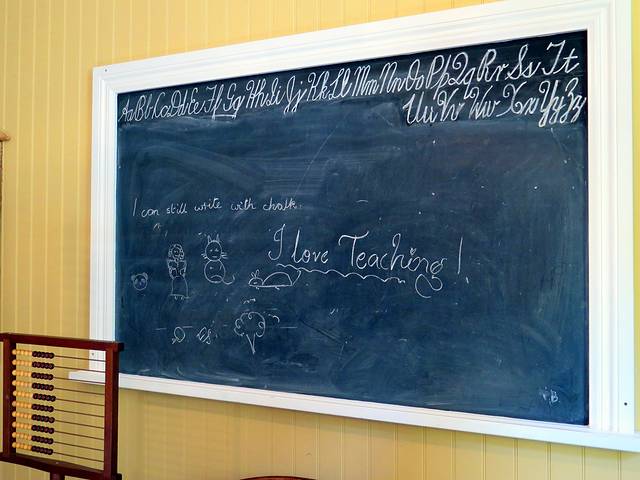 Aa Bb Cc Dd Ee Ff Gg Hh Ii Jj Kk Ll Mm Nn Oo Pp Qq Rr Ss Tt
Uu Vv Ww Xx Yy Zz
I can still write with chalk.
I love Teaching!